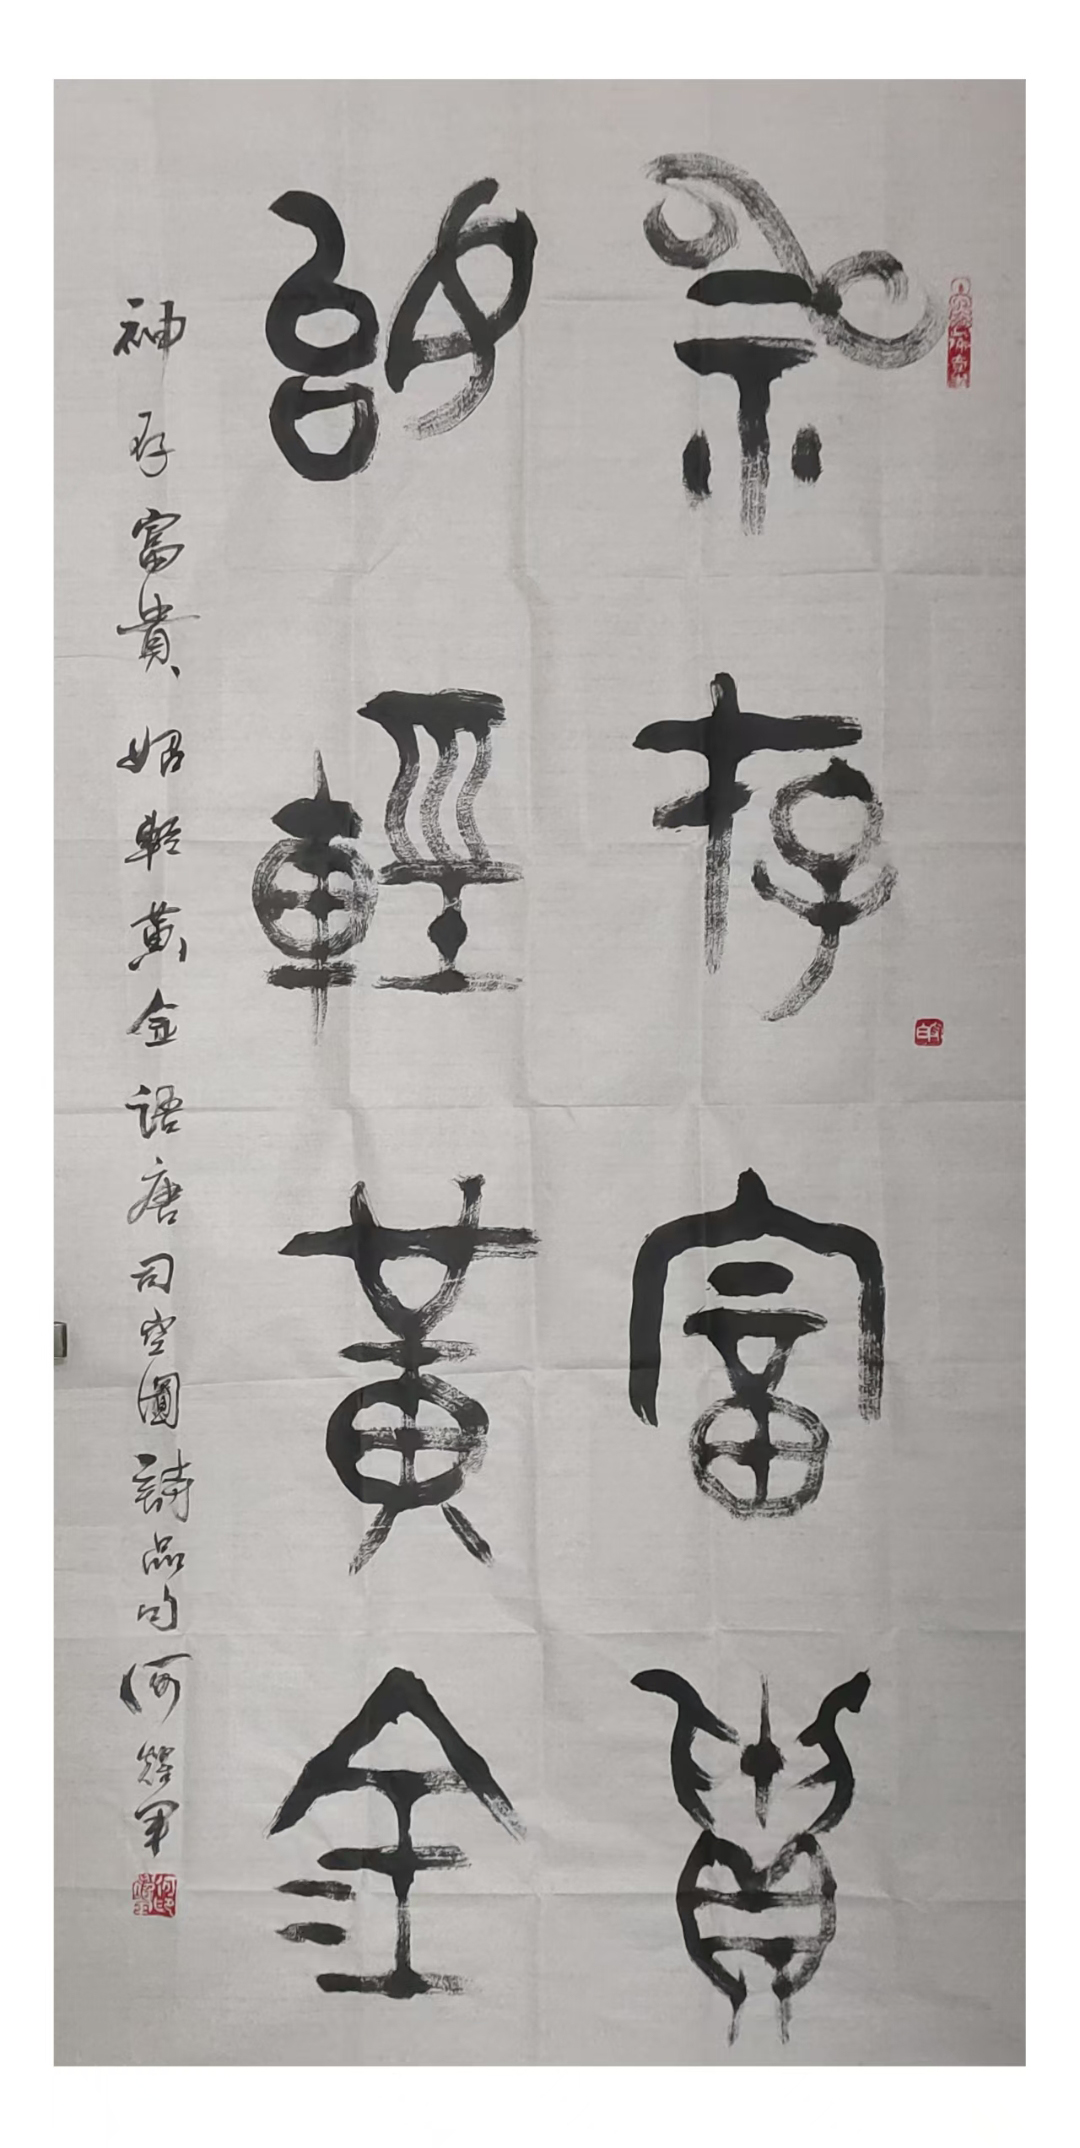 神存富貴
始輕黃金
神存富貴、始輕黃金語唐司空圖詩品句何耀軍